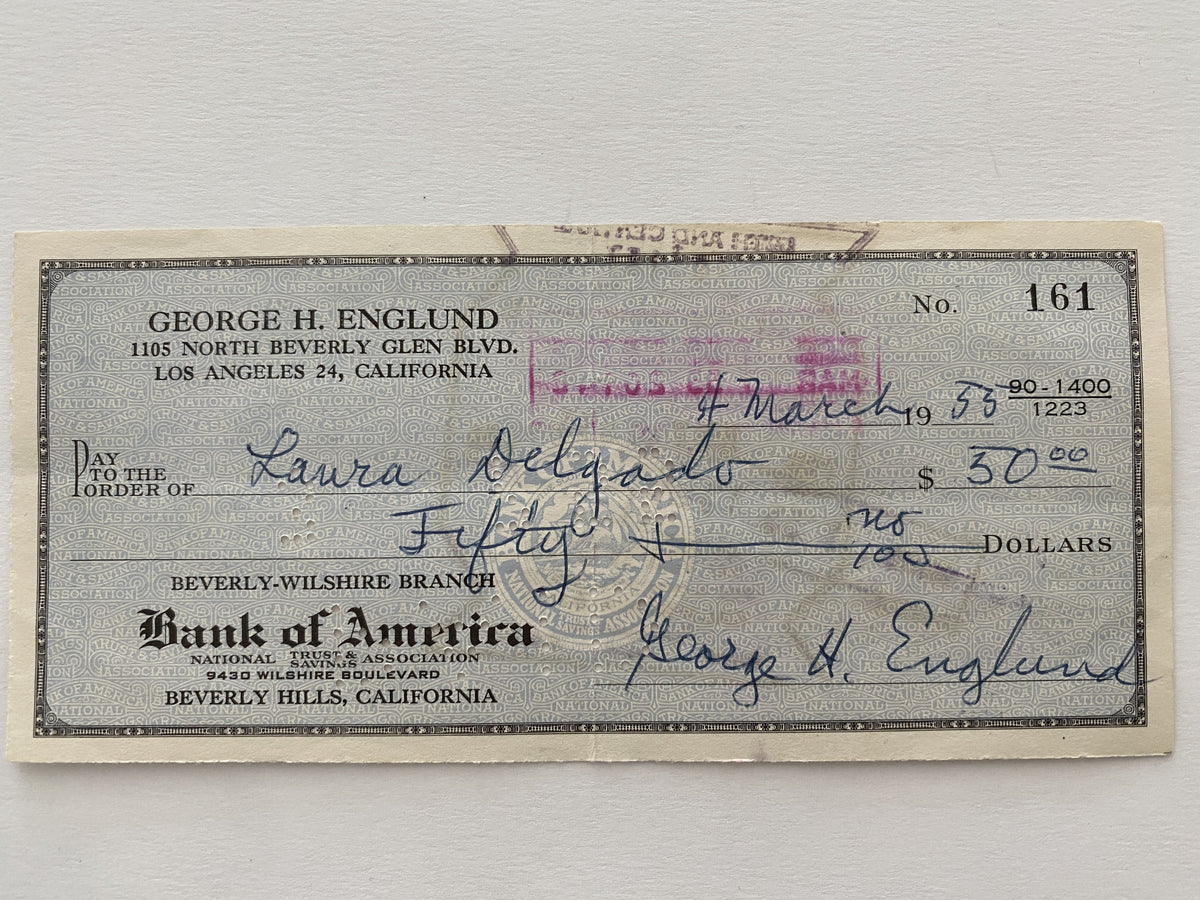 No. 161
GEORGE H. ENGLUND
1105 NORTH BEVERLY GLEN BLVD.
LOS ANGELES 24, CALIFORNIA
4 March 19 55
90-1400
1223
PAY TO THE ORDER OF Laura Delgado $ 50 00
Fifty + no/100 DOLLARS
BEVERLY-WILSHIRE BRANCH
Bank of America
NATIONAL TRUST & SAVINGS ASSOCIATION
9430 WILSHIRE BOULEVARD
BEVERLY HILLS, CALIFORNIA
George H. Englund